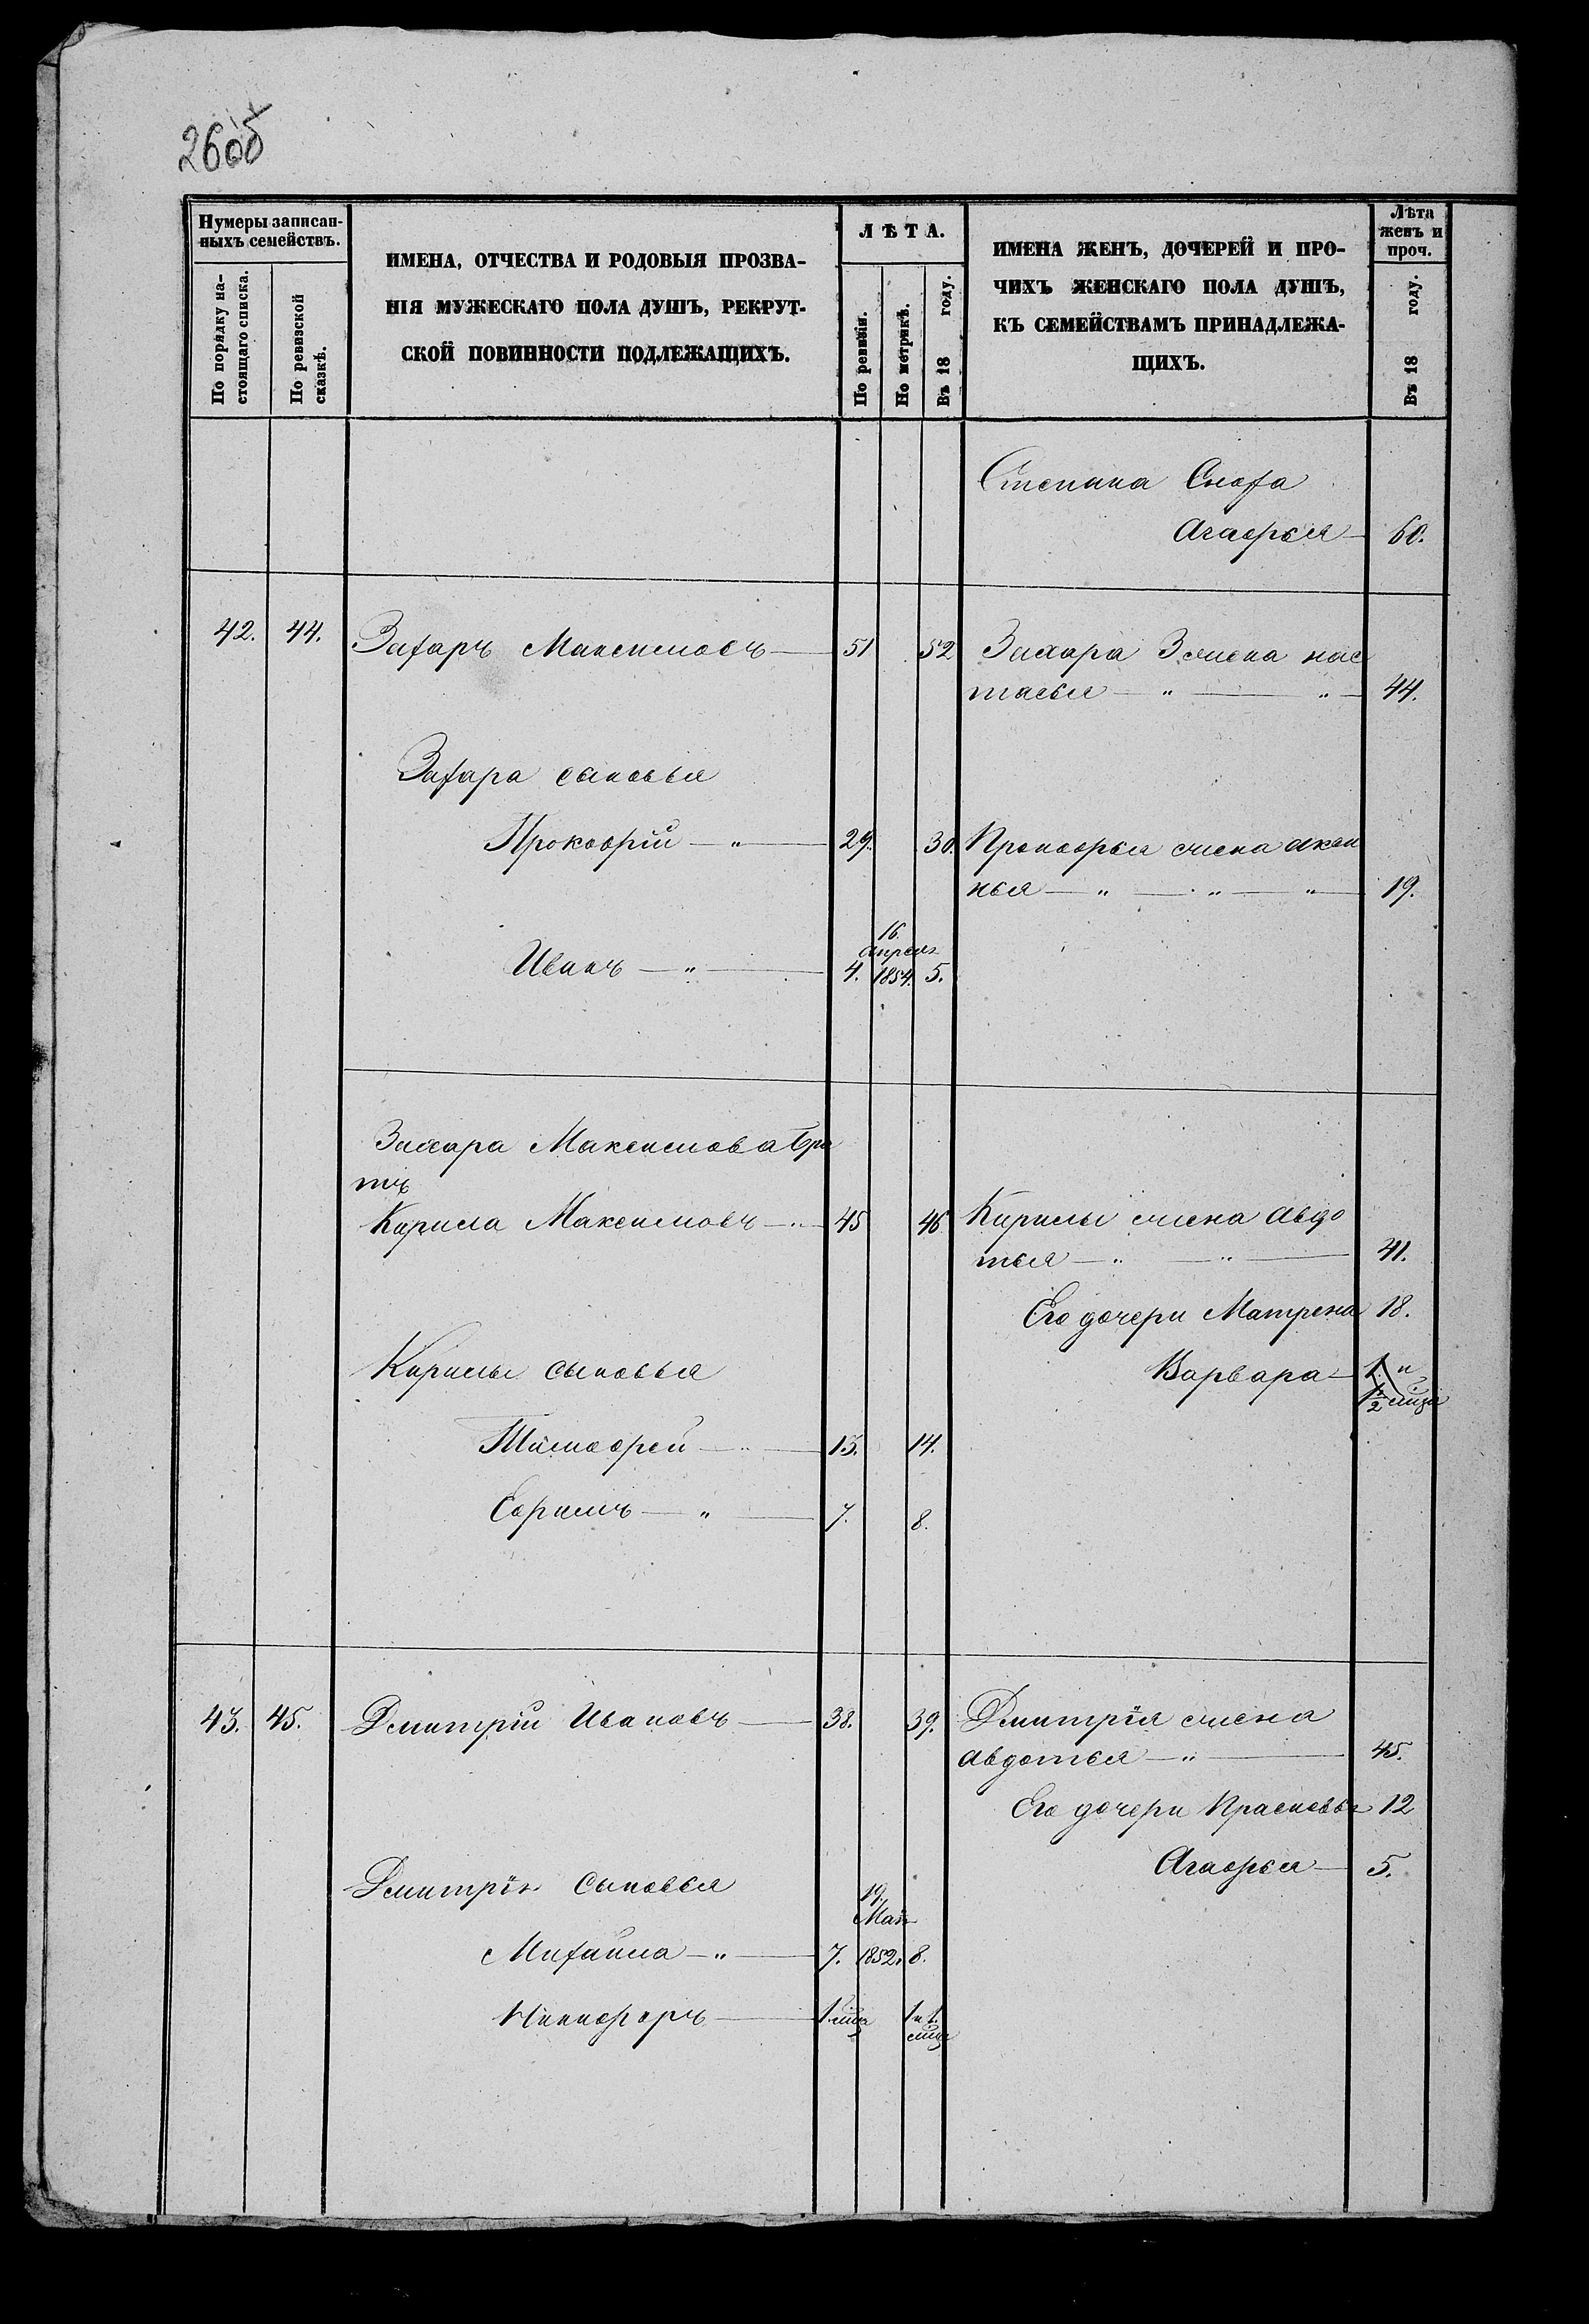 260б
Нумеры записан-
ныхъ семействъ.
По порядку на-
стоящаго списка.
По ревизской
сказкѣ.
ИМЕНА, ОТЧЕСТВА И РОДОВЫЯ ПРОЗВА-
НІЯ МУЖЕСКАГО ПОЛА ДУШЪ, РЕКРУТ-
СКОЙ ПОВИННОСТИ ПОДЛЕЖАЩИХЪ.
ЛѢТА.
По ревизіи.
По метрикѣ.
Въ 18 году.
ИМЕНА ЖЕНЪ, ДОЧЕРЕЙ И ПРО-
ЧИХЪ ЖЕНСКАГО ПОЛА ДУШЪ,
КЪ СЕМЕЙСТВАМЪ ПРИНАДЛЕЖА-
ЩИХЪ.
Лѣта
женъ и
проч.
Въ 18 году.
Степана Сноха
Агафья 60.
42. 44. Захаръ Максимовъ 51 52 Захара Жена Нас
тасья 44.
Захара сыновья
Прокофій 29. 30. Прокофья жена Акси
нья 19.
16.
Апреля
Иванъ 4. 1854. 5.
Захара Максимова бра
тъ
Кирила Максимовъ 45 46 Кирилы жена Авдо
тья 41.
Его дочери Матрена 18.
Кирилы сыновья Варвара 1. и
1/2 мца
Тимофей 13. 14.
Ефимъ 7. 8.
43. 45. Дмитрій Ивановъ 38. 39. Дмитрія жена
Авдотья 45.
Его дочери Прасковья 12
Агафья 5.
Дмитрія сыновья
19.
Мая
Михаила 7. 1852. 8.
Никифоръ 1 мца 1 и 1.
мца